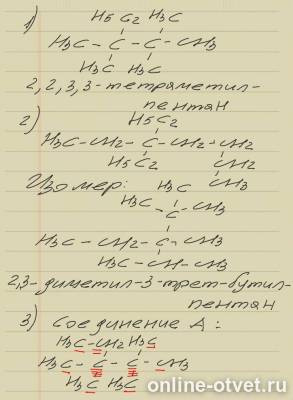 1)
H5C2 H3C
H3C - C - C - CH3
H3C H3C
2,2,3,3-тетраметил-
пентан
2)
H5C2
H3C - CH2 - C - CH2 - CH2
H5C2 CH2
CH3
Изомер:
H3C
H3C - C - CH3
H3C - CH2 - C - CH3
H3C - CH - CH3
2,3-диметил-3-трет-бутил-
пентан
3) Соединение А:
H3C - CH2 H3C
H3C - C - C - CH3
H3C H3C
online-otvet.ru